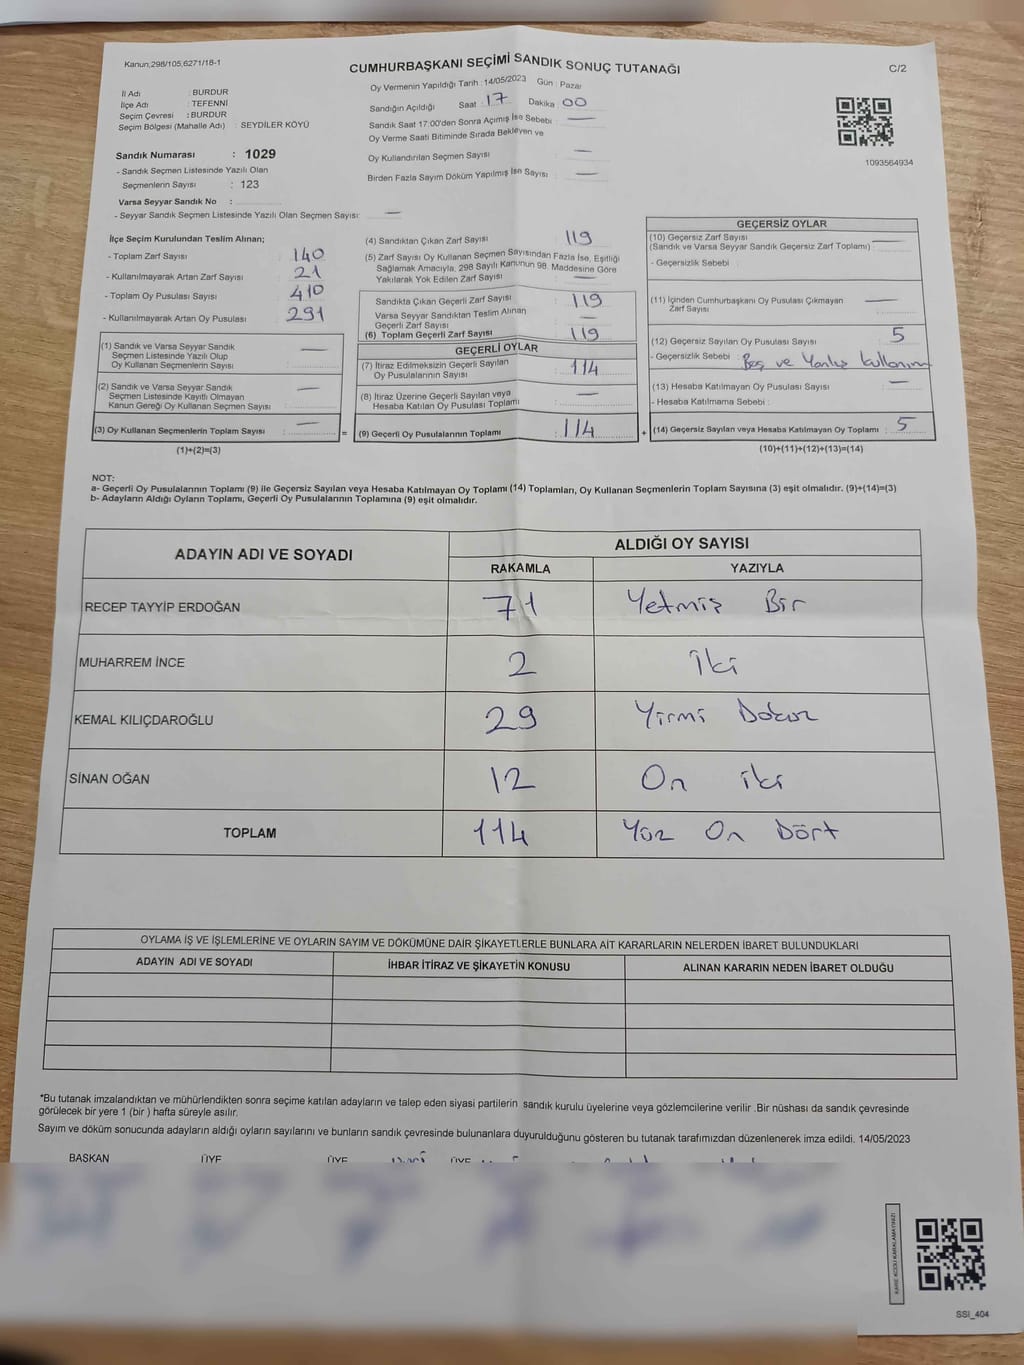 Kanun,298/105,6271/18-1
CUMHURBAŞKANI SEÇİMİ SANDIK SONUÇ TUTANAĞI
C/2
İl Adı : BURDUR
İlçe Adı : TEFENNİ
Seçim Çevresi : BURDUR
Seçim Bölgesi (Mahalle Adı) : SEYDİLER KÖYÜ
Sandık Numarası : 1029
- Sandık Seçmen Listesinde Yazılı Olan
Seçmenlerin Sayısı : 123
Varsa Seyyar Sandık No :
- Seyyar Sandık Seçmen Listesinde Yazılı Olan Seçmen Sayısı: —
Oy Vermenin Yapıldığı Tarih : 14/05/2023 Gün : Pazar
Sandığın Açıldığı Saat 17 Dakika 00
Sandık Saat 17:00'den Sonra Açımış İse Sebebi : —
Oy Verme Saati Bitiminde Sırada Bekleyen ve
Oy Kullandırılan Seçmen Sayısı —
Birden Fazla Sayım Döküm Yapılmış İse Sayısı : —
1093564934
İlçe Seçim Kurulundan Teslim Alınan;
- Toplam Zarf Sayısı : 140
- Kullanılmayarak Artan Zarf Sayısı : 21
- Toplam Oy Pusulası Sayısı : 410
- Kullanılmayarak Artan Oy Pusulası : 291
(1) Sandık ve Varsa Seyyar Sandık
Seçmen Listesinde Yazılı Olup
Oy Kullanan Seçmenlerin Sayısı : —
(2) Sandık ve Varsa Seyyar Sandık
Seçmen Listesinde Kayıtlı Olmayan
Kanun Gereği Oy Kullanan Seçmen Sayısı : —
(3) Oy Kullanan Seçmenlerin Toplam Sayısı : — =
(1)+(2)=(3)
(4) Sandıktan Çıkan Zarf Sayısı : 119
(5) Zarf Sayısı Oy Kullanan Seçmen Sayısından Fazla İse, Eşitliği
Sağlamak Amacıyla, 298 Sayılı Kanunun 98. Maddesine Göre
Yakılarak Yok Edilen Zarf Sayısı : —
Sandıkta Çıkan Geçerli Zarf Sayısı : 119
Varsa Seyyar Sandıktan Teslim Alınan
Geçerli Zarf Sayısı : —
(6) Toplam Geçerli Zarf Sayısı : 119
GEÇERLİ OYLAR
(7) İtiraz Edilmeksizin Geçerli Sayılan
Oy Pusulalarının Sayısı : 114
(8) İtiraz Üzerine Geçerli Sayılan veya
Hesaba Katılan Oy Pusulası Toplamı : —
(9) Geçerli Oy Pusulalarının Toplamı : 114 +
GEÇERSİZ OYLAR
(10) Geçersiz Zarf Sayısı
(Sandık ve Varsa Seyyar Sandık Geçersiz Zarf Toplamı) : —
- Geçersizlik Sebebi :
(11) İçinden Cumhurbaşkanı Oy Pusulası Çıkmayan
Zarf Sayısı : —
(12) Geçersiz Sayılan Oy Pusulası Sayısı : 5
- Geçersizlik Sebebi : Boş ve Yanlış Kullanım
(13) Hesaba Katılmayan Oy Pusulası Sayısı : —
- Hesaba Katılmama Sebebi :
(14) Geçersiz Sayılan veya Hesaba Katılmayan Oy Toplamı : 5
(10)+(11)+(12)+(13)=(14)
NOT:
a- Geçerli Oy Pusulalarının Toplamı (9) ile Geçersiz Sayılan veya Hesaba Katılmayan Oy Toplamı (14) Toplamları, Oy Kullanan Seçmenlerin Toplam Sayısına (3) eşit olmalıdır. (9)+(14)=(3)
b- Adayların Aldığı Oyların Toplamı, Geçerli Oy Pusulalarının Toplamına (9) eşit olmalıdır.
ADAYIN ADI VE SOYADI
ALDIĞI OY SAYISI
RAKAMLA YAZIYLA
RECEP TAYYİP ERDOĞAN 71 Yetmiş Bir
MUHARREM İNCE 2 İki
KEMAL KILIÇDAROĞLU 29 Yirmi Dokuz
SİNAN OĞAN 12 On iki
TOPLAM 114 Yüz On Dört
OYLAMA İŞ VE İŞLEMLERİNE VE OYLARIN SAYIM VE DÖKÜMÜNE DAİR ŞİKAYETLERLE BUNLARA AİT KARARLARIN NELERDEN İBARET BULUNDUKLARI
ADAYIN ADI VE SOYADI İHBAR İTİRAZ VE ŞİKAYETİN KONUSU ALINAN KARARIN NEDEN İBARET OLDUĞU
*Bu tutanak imzalandıktan ve mühürlendikten sonra seçime katılan adayların ve talep eden siyasi partilerin sandık kurulu üyelerine veya gözlemcilerine verilir .Bir nüshası da sandık çevresinde
görülecek bir yere 1 (bir ) hafta süreyle asılır.
Sayım ve döküm sonucunda adayların aldığı oyların sayılarını ve bunların sandık çevresinde bulunanlara duyurulduğunu gösteren bu tutanak tarafımızdan düzenlenerek imza edildi. 14/05/2023
BAŞKAN ÜYE ÜYE ÜYE
KARE KODU KARALAMAYINIZ!
SSI_404